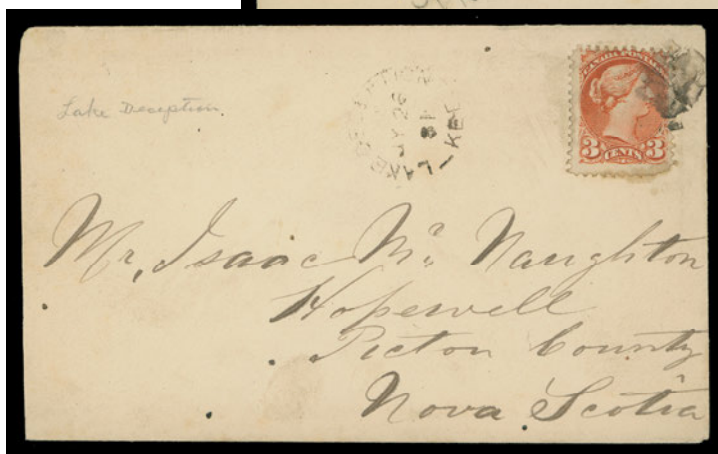 Lake Deception
LAKE DECEPTION
JY 26
81
KEE
CANADA POSTAGE
3 CENTS 3
Mr. Isaac Mc Naughton
Hopewell
Pictou County
Nova Scotia